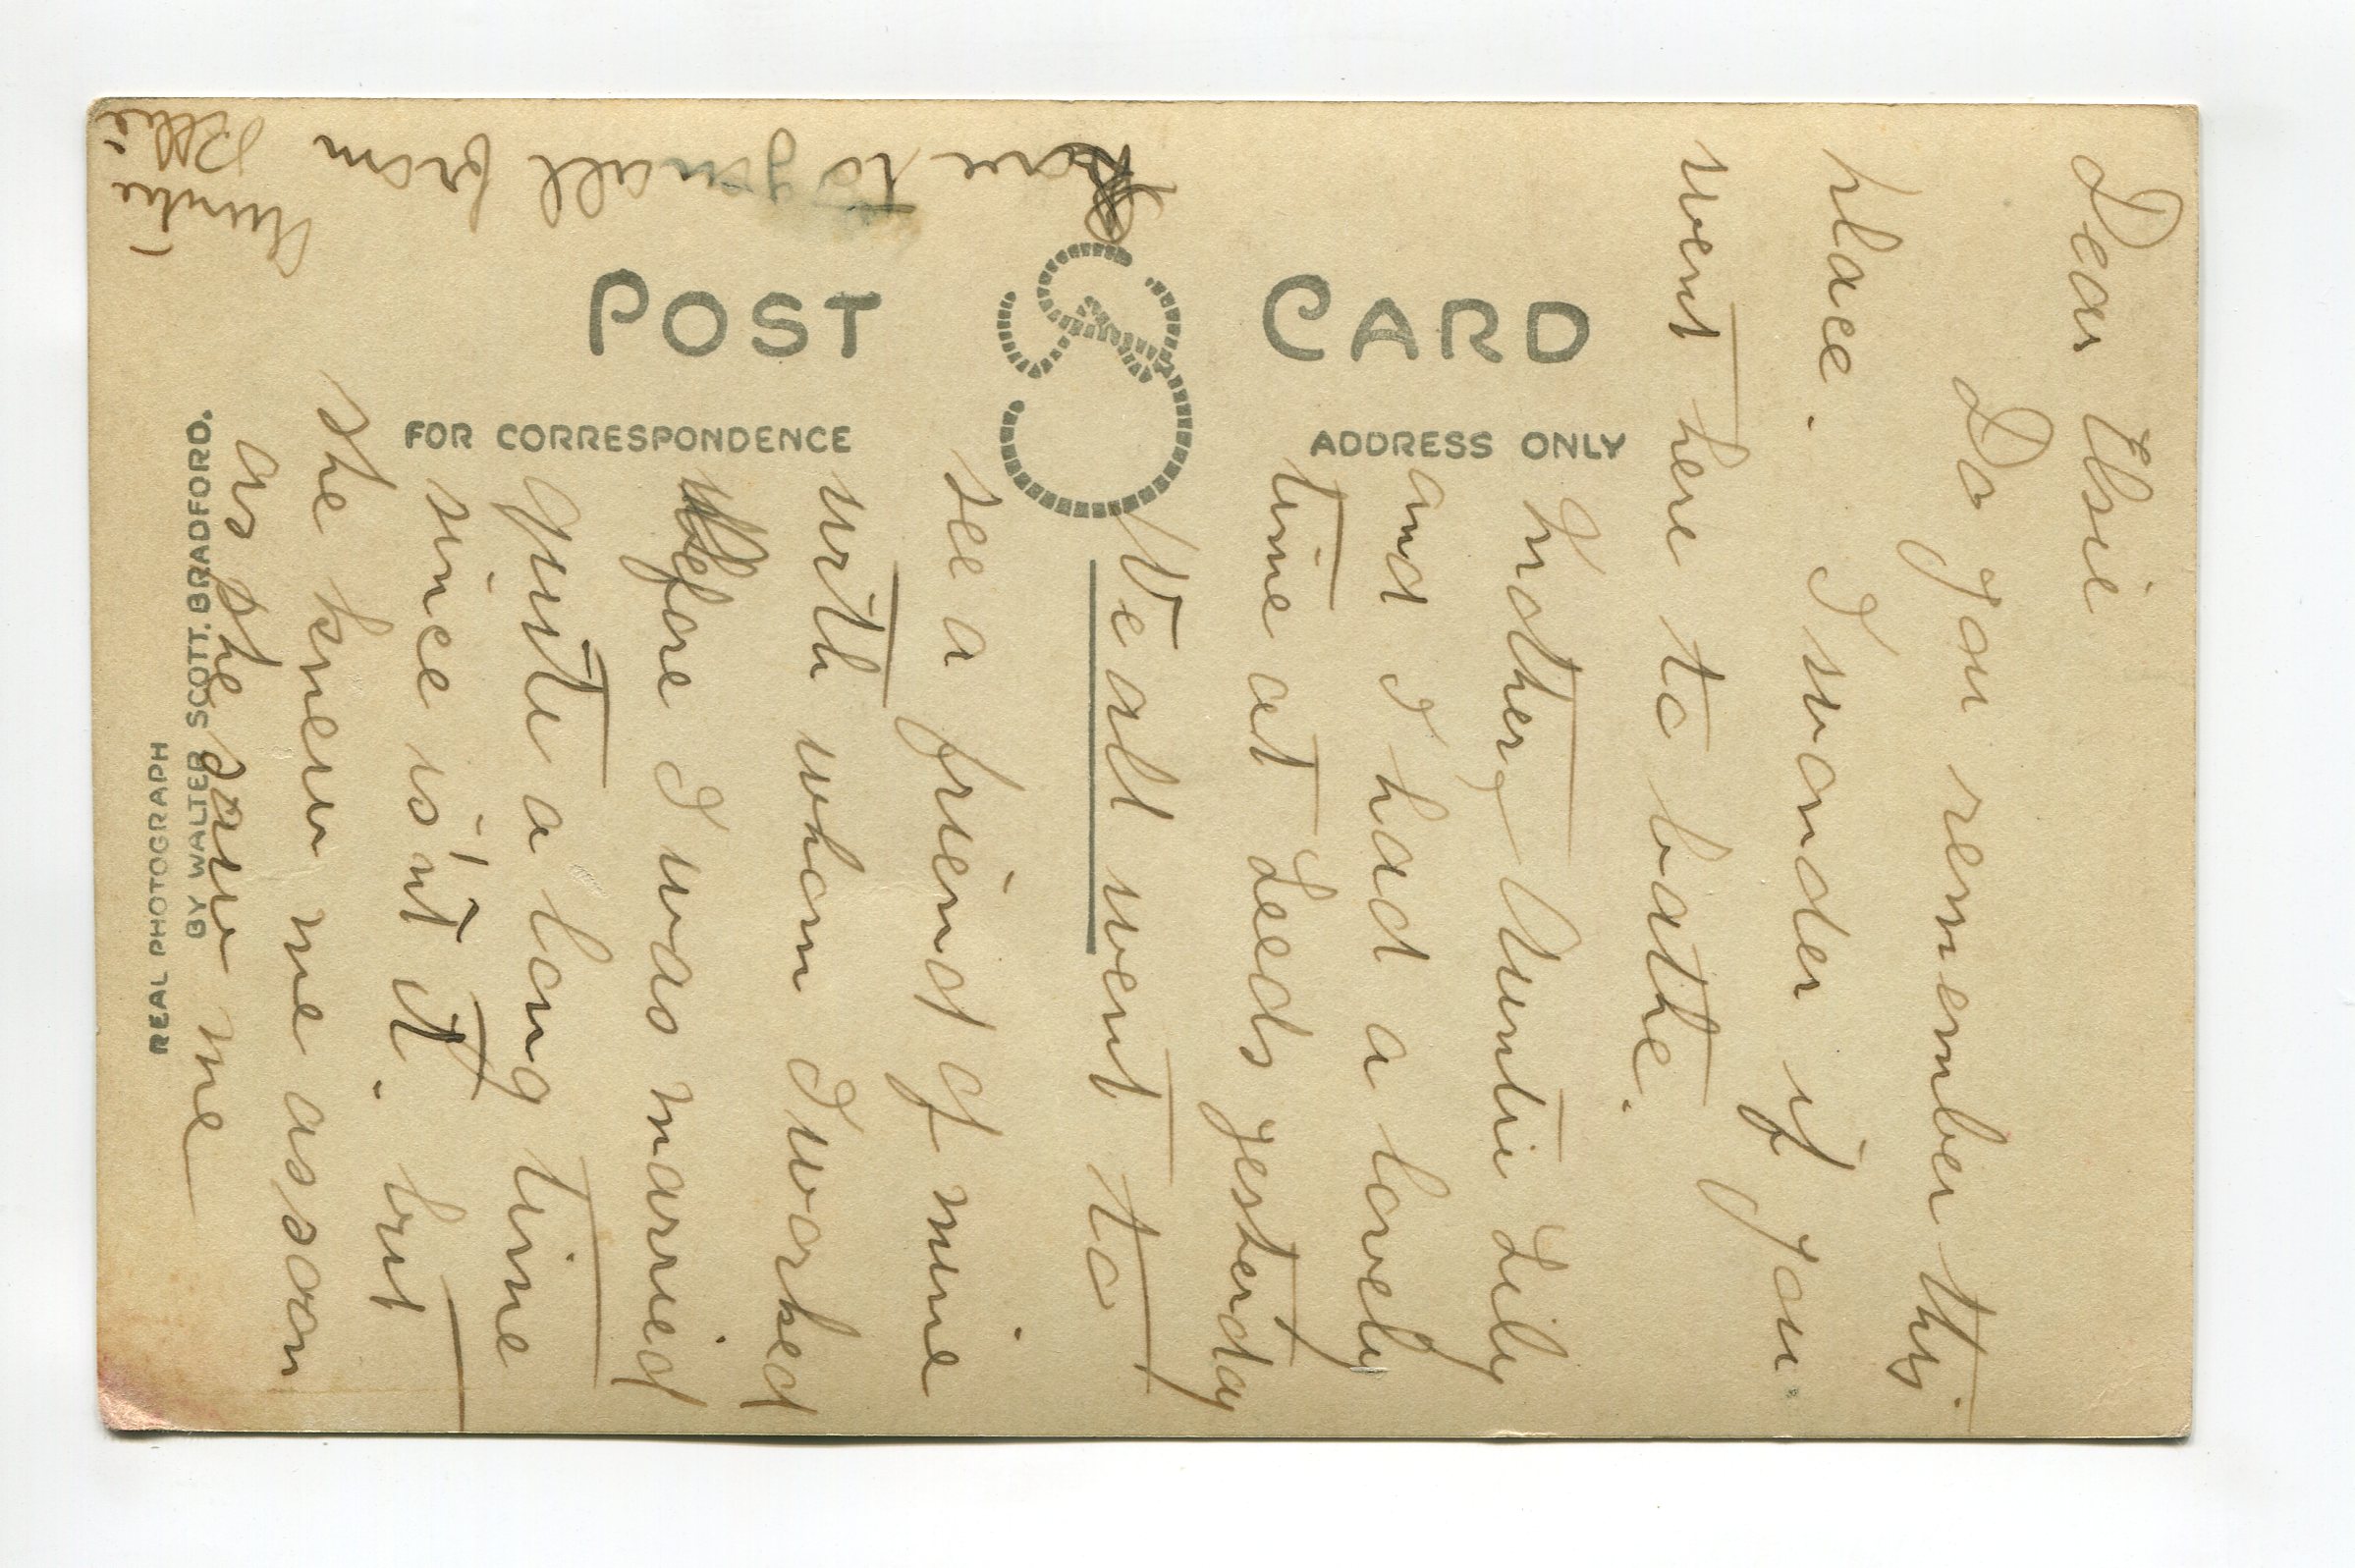 POST CARD
FOR CORRESPONDENCE
ADDRESS ONLY
REAL PHOTOGRAPH
BY WALTER SCOTT. BRADFORD.
Dear Elsie
Do you remember this
place. I wonder if you
went here to bathe.
Mother, Auntie Lily
and I had a lovely
time at Leeds yesterday
We all went to
see a friend of mine
with whom I worked
before I was married
quite a long time
since is'nt it. but
she knew me as soon
as she saw me
Love to you all from
Auntie